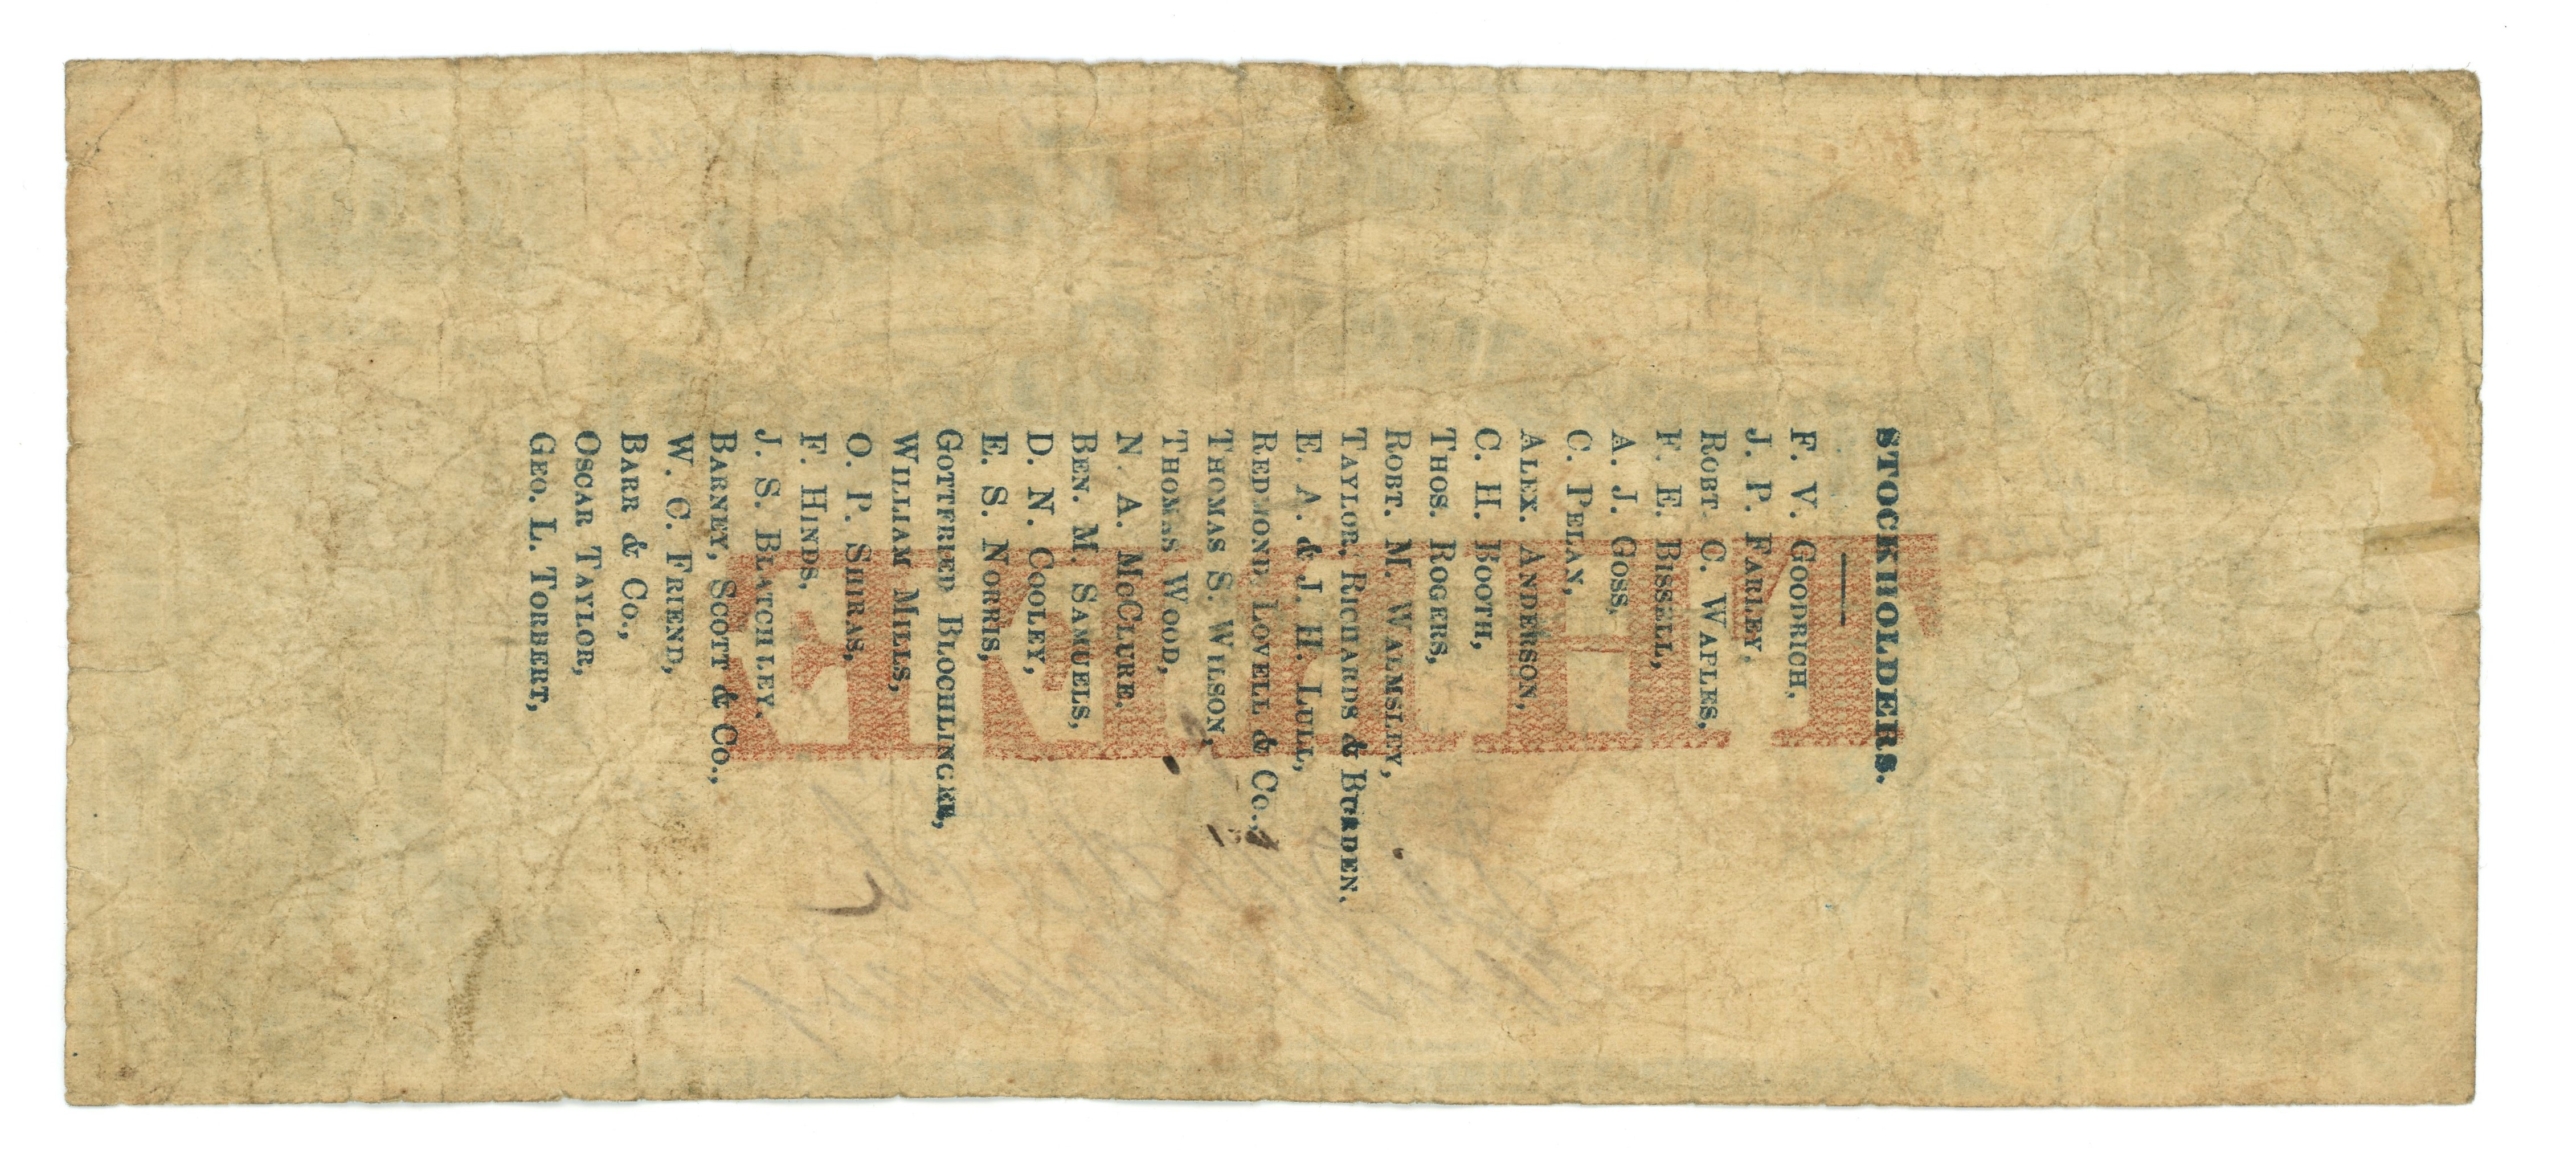 STOCKHOLDERS.
F. V. GOODRICH,
J. P. FARLEY,
ROBT C. WAPLES,
F. E. BISSELL,
A. J. GOSS,
C. PELAN,
ALEX. ANDERSON,
C. H. BOOTH,
THOS. ROGERS,
ROBT. M. WALMSLEY,
TAYLOR, RICHARDS & BURDEN,
E. A. & J. H. LULL,
REDMOND, LOVELL & CO.,
THOMAS S. WILSON,
THOMAS WOOD,
N. A. MCCLURE,
BEN. M. SAMUELS,
D. N. COOLEY,
E. S. NORRIS,
GOTTFRIED BLOCHLINGER,
WILLIAM MILLS,
O. P. SHIRAS,
F. HINDS,
J. S. BLATCHLEY,
BARNEY, SCOTT & CO.,
W. C. FRIEND,
BARR & CO.,
OSCAR TAYLOR,
GEO. L. TORBERT,
THREE